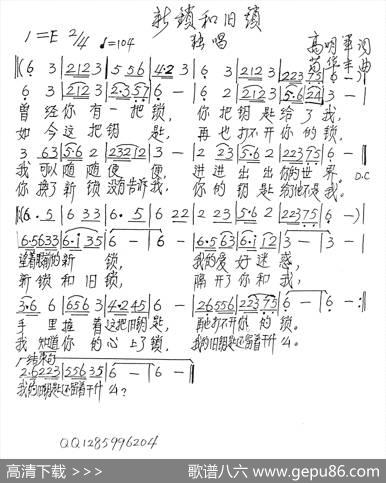 新锁和旧锁
1=E 2/4 ♩=104
独唱
高明军 词
曲
‖(6 3 | 212 3 | 5 5 6 | 4·2 3 | 6 3 | 212 3 | 223 75 | 6 — )|
6 3 | 212 3 | 2·3 57 | 6 — | 6 2 | 212 3 | 5·6 24 | 3 — |
曾经你有一把锁, 你把钥匙给了我,
如今这把钥匙, 再也打不开你的锁,
3 63 | 5·6 2 | 23212 | 3 — | 2 23 | 5·6 2 | 223 75 | 6 — ‖
我可以随随便便 进进出出你的世界. D.C
你换了新锁没告诉我, 你的钥匙给他不是我。
‖(6·5 | 6 33 | 6·5 | 6 22 | 2 23 | 5·6 2 | 223 75 | 6 — )|
6·5633 | 6·i 35 | 6 — | 6 — | 6·5 63 | 6·i i2 | 3 — | 3 — |
望着眼前的新锁, 我的爱好迷惑,
新锁和旧锁, 隔开了你和我,
3·6 6 | 656 3 | 4·245 | 6 — | 26556 | 223 75 | 6 — | 6 — :‖
手里握着这把旧钥匙, 再也打不开你的锁。
我知道你的心上了锁, 我的旧钥匙还留着干什么。
结束句
2·6223 | 556 35 | 6 — | 6 — ‖
我的旧钥匙还留着干什么?
QQ1285996204
高清下载 >>>
歌谱八六 www.gepu86.com